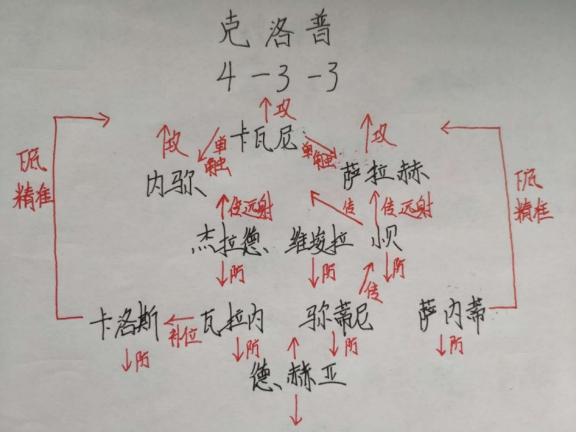 克洛普
4-3-3
攻
攻 单触 卡瓦尼 单触 攻
内弥 萨拉赫
下底 精准 传远射 传 传远射 下底 精准
杰拉德 维埃拉 小贝
防 防 传 防
卡洛斯 补位 瓦拉内 弥蒂尼 萨内蒂
防 防 防 防
德赫亚